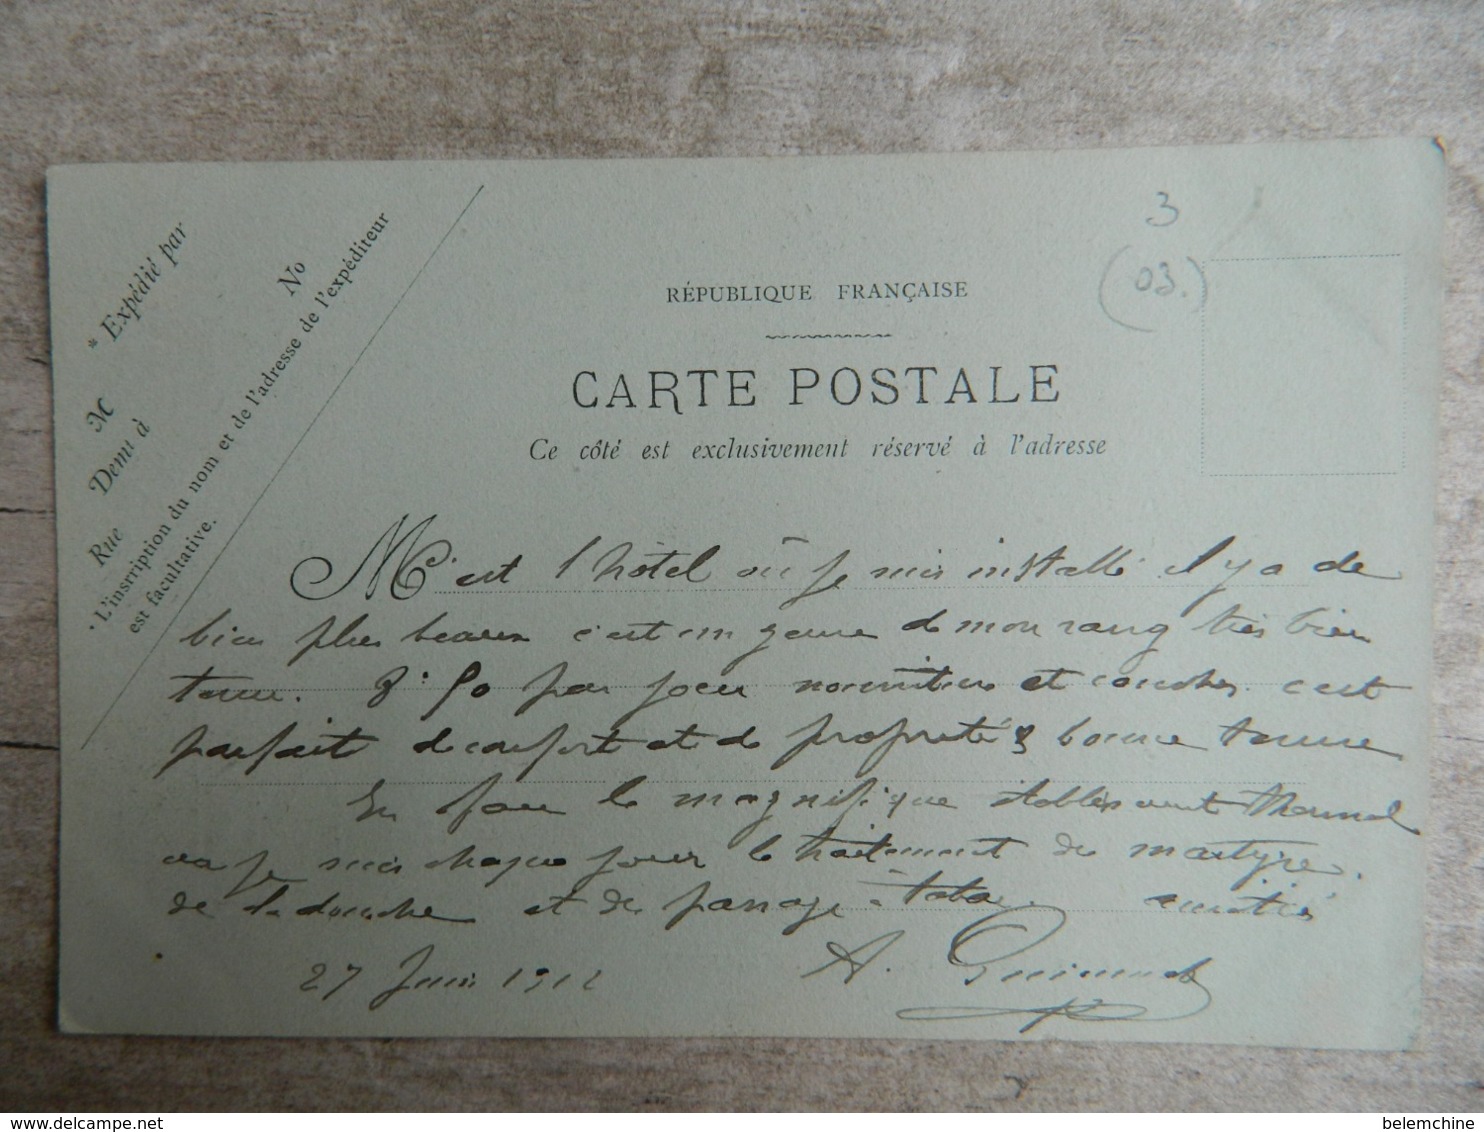 * Expédié par
M No
Demt à
Rue
* L'inscription du nom et de l'adresse de l'expéditeur
est facultative.
3
(03.)
RÉPUBLIQUE FRANÇAISE
CARTE POSTALE
Ce côté est exclusivement réservé à l'adresse
M
c'est l'hôtel où je suis installé il y a de
bien plus beaux c'est un genre de mon rang très bien
tenu. 8f 50 par jour nourriture et coucher c'est
parfait de confort et de propreté & bonne tenue
En face le magnifique établissement thermal
où je suis chaque jour le traitement de martyre.
de la douche et de amitiés
27 Juin 1912 A.
belemchine